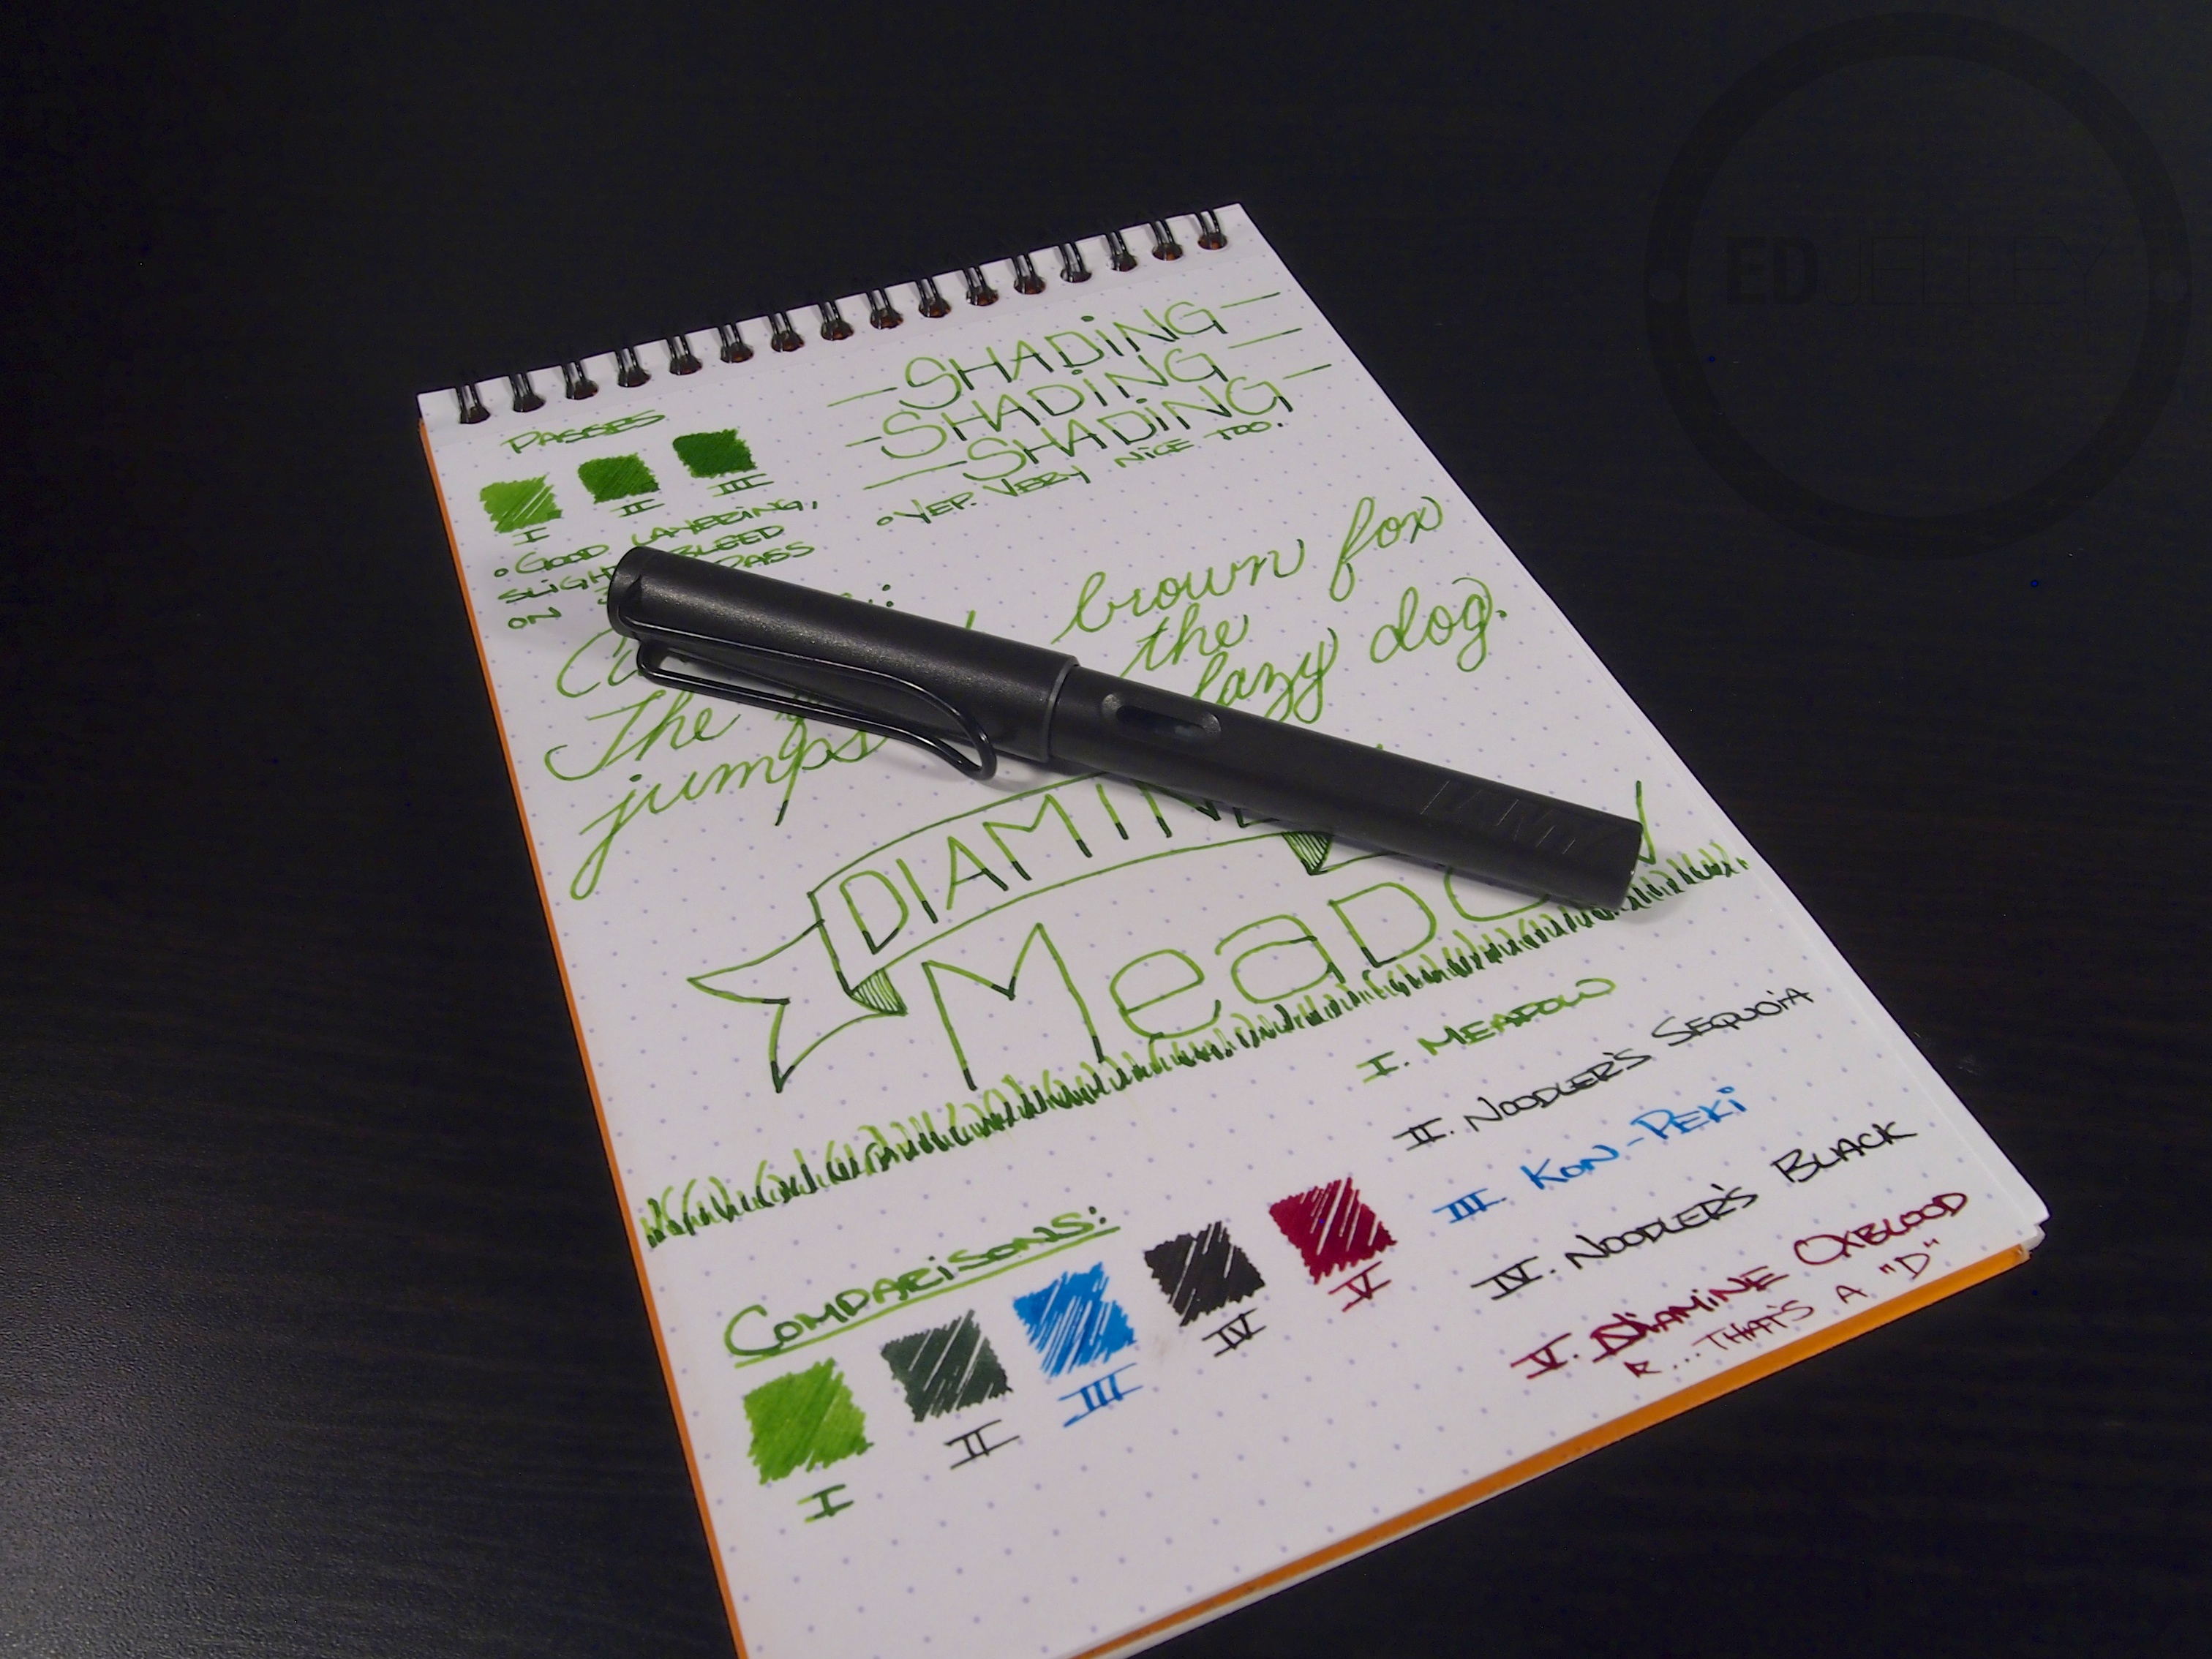 ED JELLEY
SHADING
SHADING
SHADING
YEP. VERY NICE TOO.
PASSES
I
II
III
GOOD LAYERING,
BLEED
PASS
ON
The brown fox
jumps the
lazy dog.
DIAMINE
MeaDO
COMPARISONS:
I
II
III
IV
V
I. MEADOW
II. NOODLER'S SEQUOIA
III. KON-PEKI
IV. NOODLER'S BLACK
V. DIAMINE OXBLOOD
R...THAT'S A "D"
LAMY